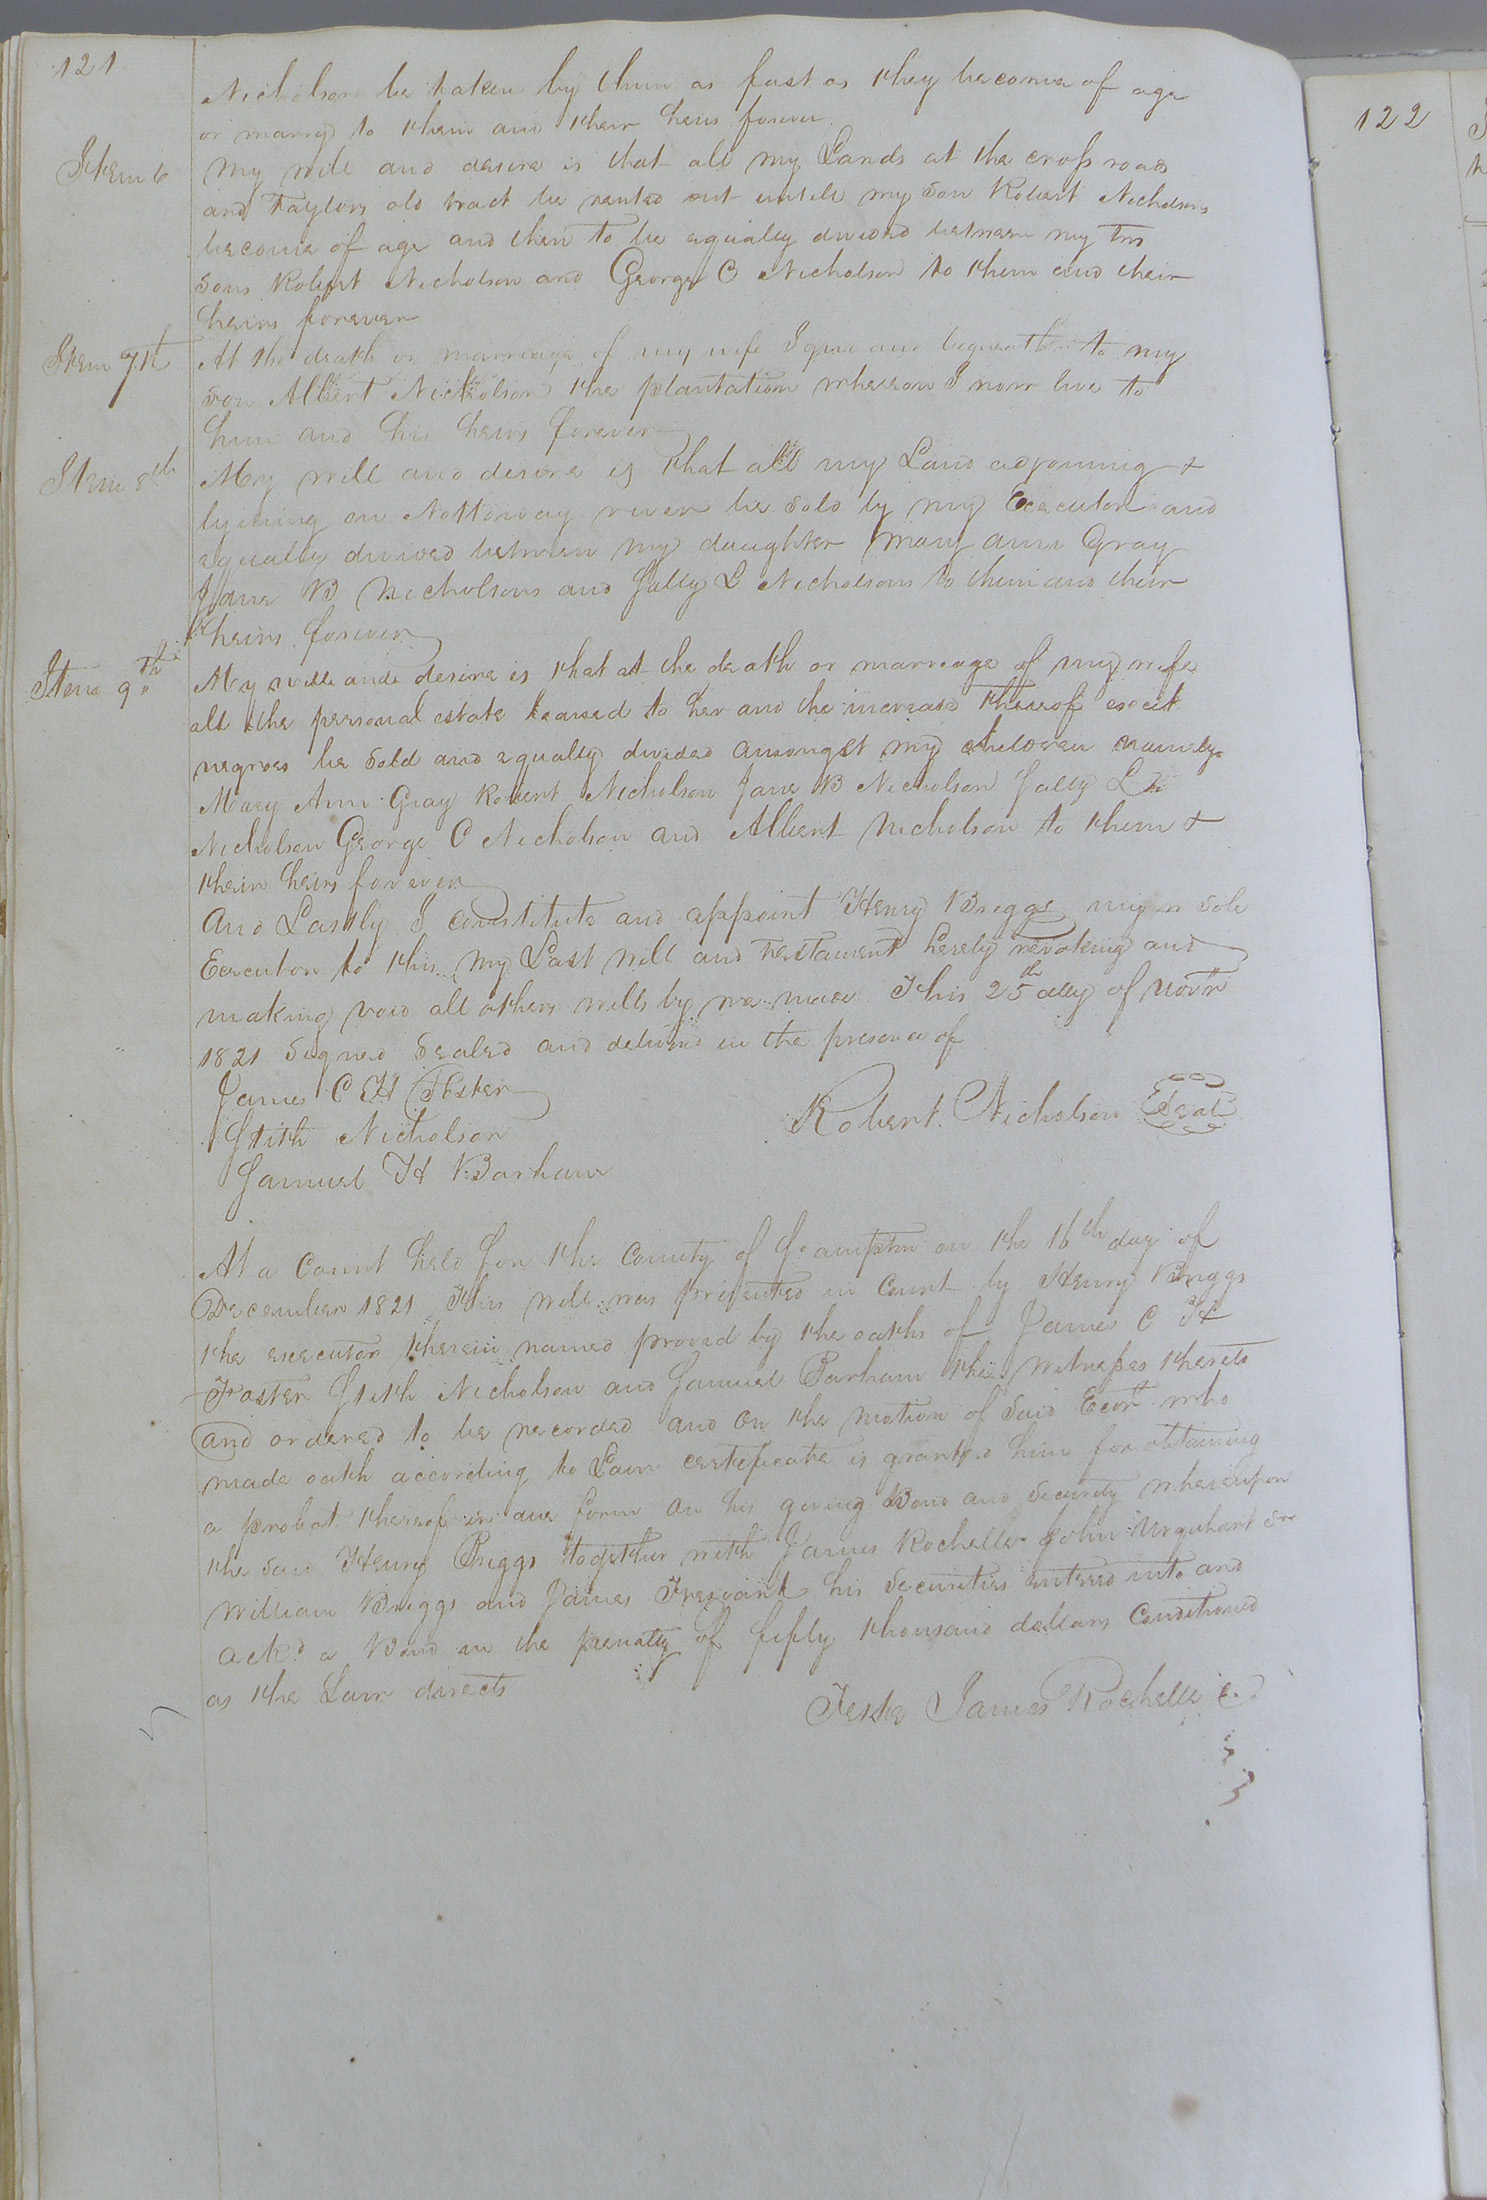 121
Nicholson be taken by them as fast as they become of age
or marry'd to them and their heirs forever
Item 6 My will and desire is that all my Lands at the cross roads
and Taylors old tract be rented out untill my Son Robert Nicholsons
become of age and then to be equally divided between my two
Sons Robert Nicholson and George C Nicholson to them and their
heirs forever
Item 7th At the death or marriage of my wife I give and bequeath to my
son Albert Nicholson the plantation whereon I now live to
him and his heirs forever
Item 8th My will and desire is that all my Land adjoining &
lyining on Nottoway river be sold by my Executor and
equally divided between my daughter Mary ann Gray
Jane B Nicholsons and Sally L Nicholsons to them and their
heirs forever
Item 9th My will and desire is that at the death or marriage of my wife
all the personal estate loaned to her and the increase thereof except
negroes be sold and equally divided amongst my children namely
Mary Ann Gray Robert Nicholson Jane B Nicholson Sally L
Nicholson George C Nicholson and Albert Nicholson to them &
their heirs forever
And Lastly I constitute and appoint Henry Briggs my sole
Executor to this my Last will and testament hereby revoking and
making void all others wills by me made This 25th day of Novr
1821 Signed Sealed and deliverd in the presence of
James C H Foster
Robert Nicholson Seal
Stith Nicholson
Samuel H Barham
At a Court held for the County of Soampton on the 16th day of
December 1821 This will was presented in Court by Henry Briggs
the executor therein named proved by the oaths of James C H
Foster Stith Nicholson and Samuel Barham the witnesses thereto
and ordered to be recorded and on the motion of Said Exor who
made oath according to Law certificate is granted him for obtaining
a probat thereof in due form on his giving Bond and Security whereupon
the said Henry Briggs together with James Rochelle John Urquhart Sr
William Briggs and James Trezvant his securities entered into and
ackd a Bond in the penalty of fifty thousand dollars Conditioned
as the Law directs
Teste James Rochelle
122